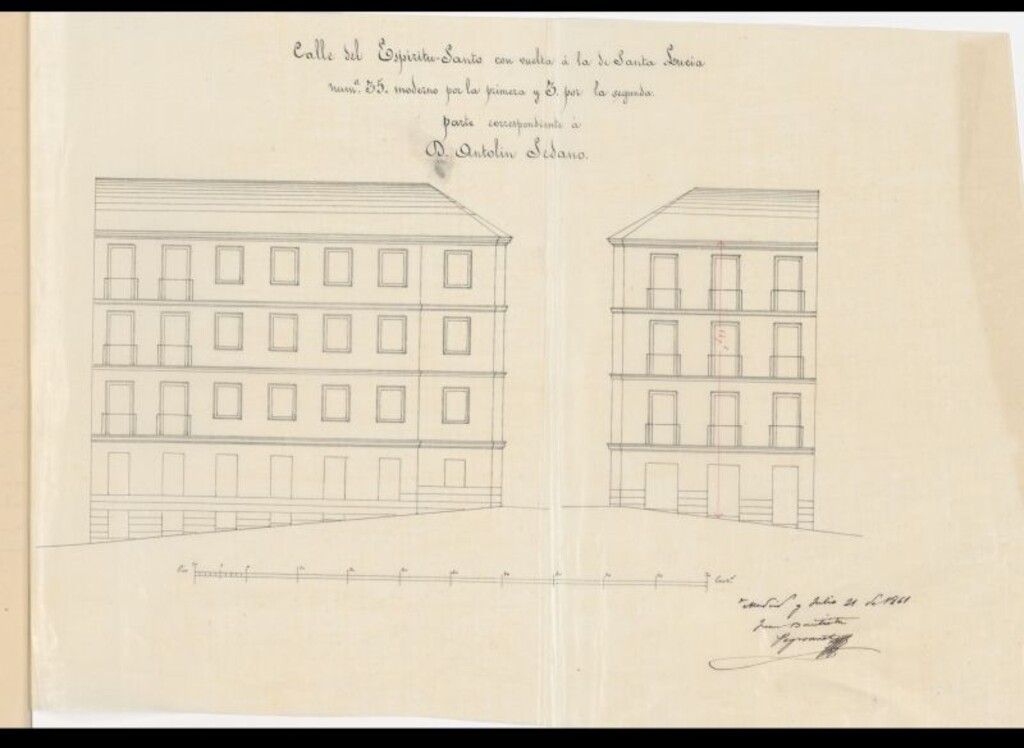 Calle del Espiritu-Santo con vuelta á la de Santa Lucia
numº. 35. moderno por la primera y 3. por la segunda.
parte correspondiente á
D. Antolin Sedano.
Madrid y Julio 21 de 1861
Juan Bautista
Peyronnet